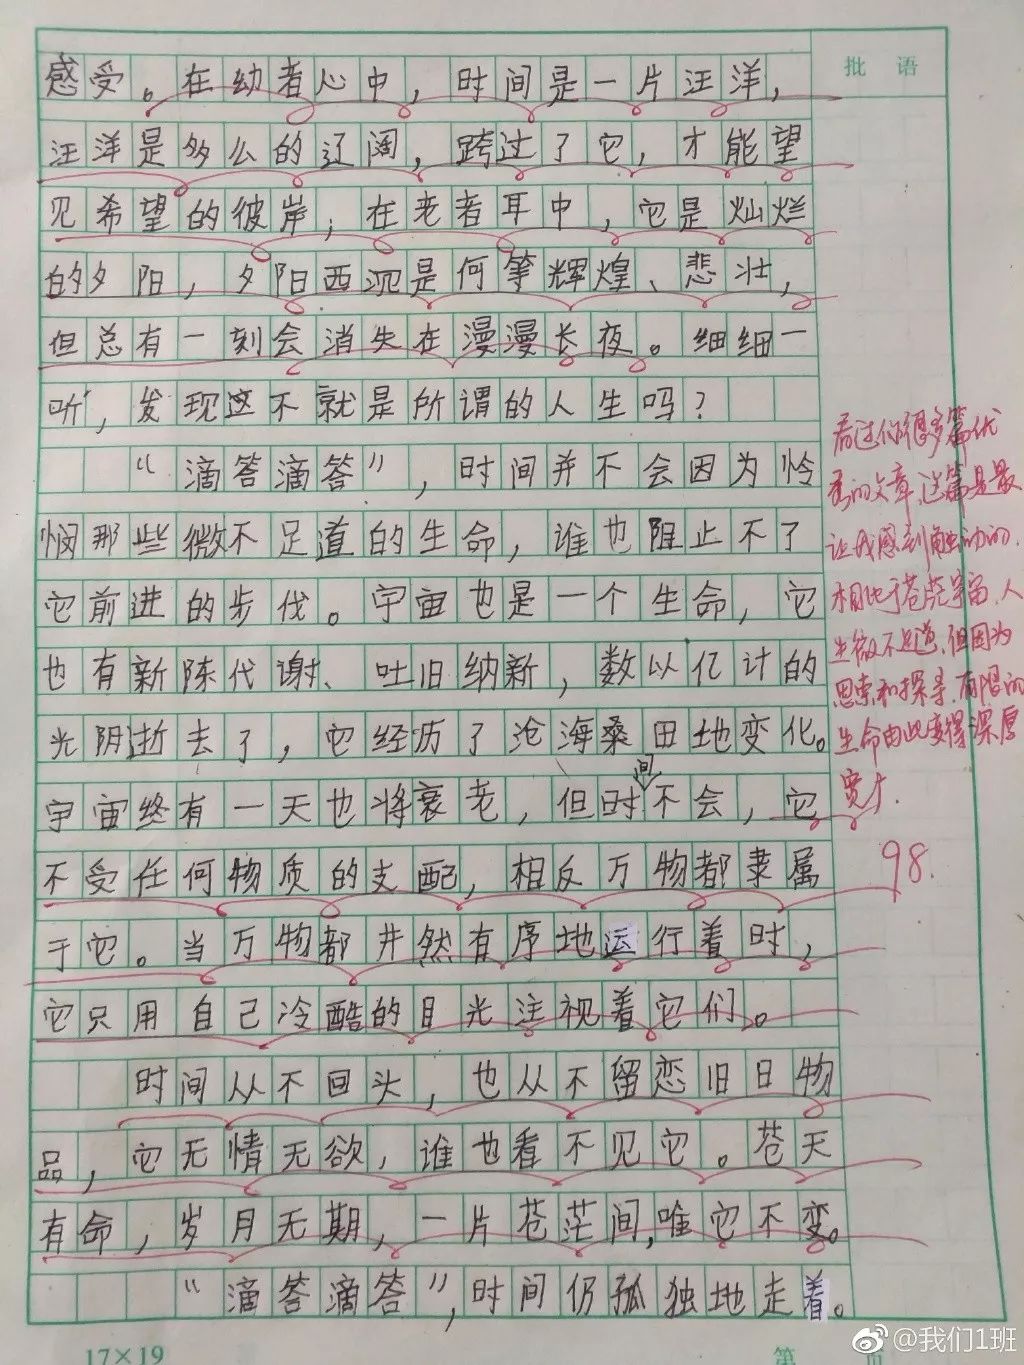 批 语
感受。在幼者心中，时间是一片汪洋，
汪洋是多么的辽阔，跨过了它，才能望
见希望的彼岸；在老者耳中，它是灿烂
的夕阳，夕阳西沉是何等辉煌、悲壮，
但总有一刻会消失在漫漫长夜。细细一
听，发现这不就是所谓的人生吗？
“滴答滴答”，时间并不会因为怜
悯那些微不足道的生命，谁也阻止不了
它前进的步伐。宇宙也是一个生命，它
也有新陈代谢、吐旧纳新，数以亿计的
光阴逝去了，它经历了沧海桑田地变化。
宇宙终有一天也将衰老，但时间不会，它
不受任何物质的支配，相反万物都隶属
于它。当万物都井然有序地运行着时，
它只用自己冷酷的目光注视着它们。
时间从不回头，也从不留恋旧日物
品，它无情无欲，谁也看不见它。苍天
有命，岁月无期，一片苍茫间，唯它不变。
“滴答滴答”，时间仍孤独地走着。
看过你很多篇优
秀的文章，这篇是最
让我感到触动的，
相比于苍茫宇宙，人
生微不足道，但因为
思索和探寻，有限的
生命由此变得深厚
宽广.
98.
17×19
第 页
@我们1班